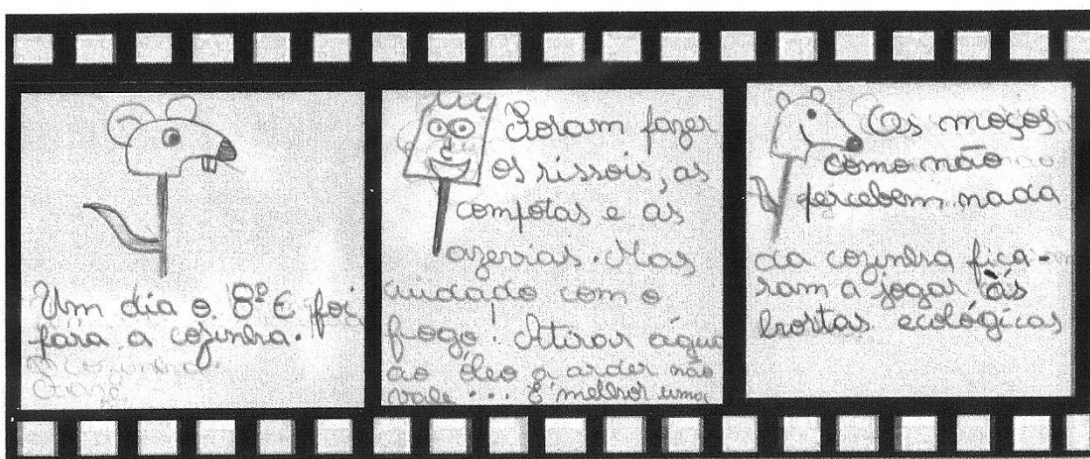 Um dia o 8º E foi
para a cozinha.
Foram fazer
os rissois, as
compotas e as
azevias. Mas
cuidado com o
fogo! Atirar água
ao óleo a arder não
vale... É melhor uma
Os moços
como não
percebem nada
da cozinha fica-
ram a jogar às
hortas ecológicas